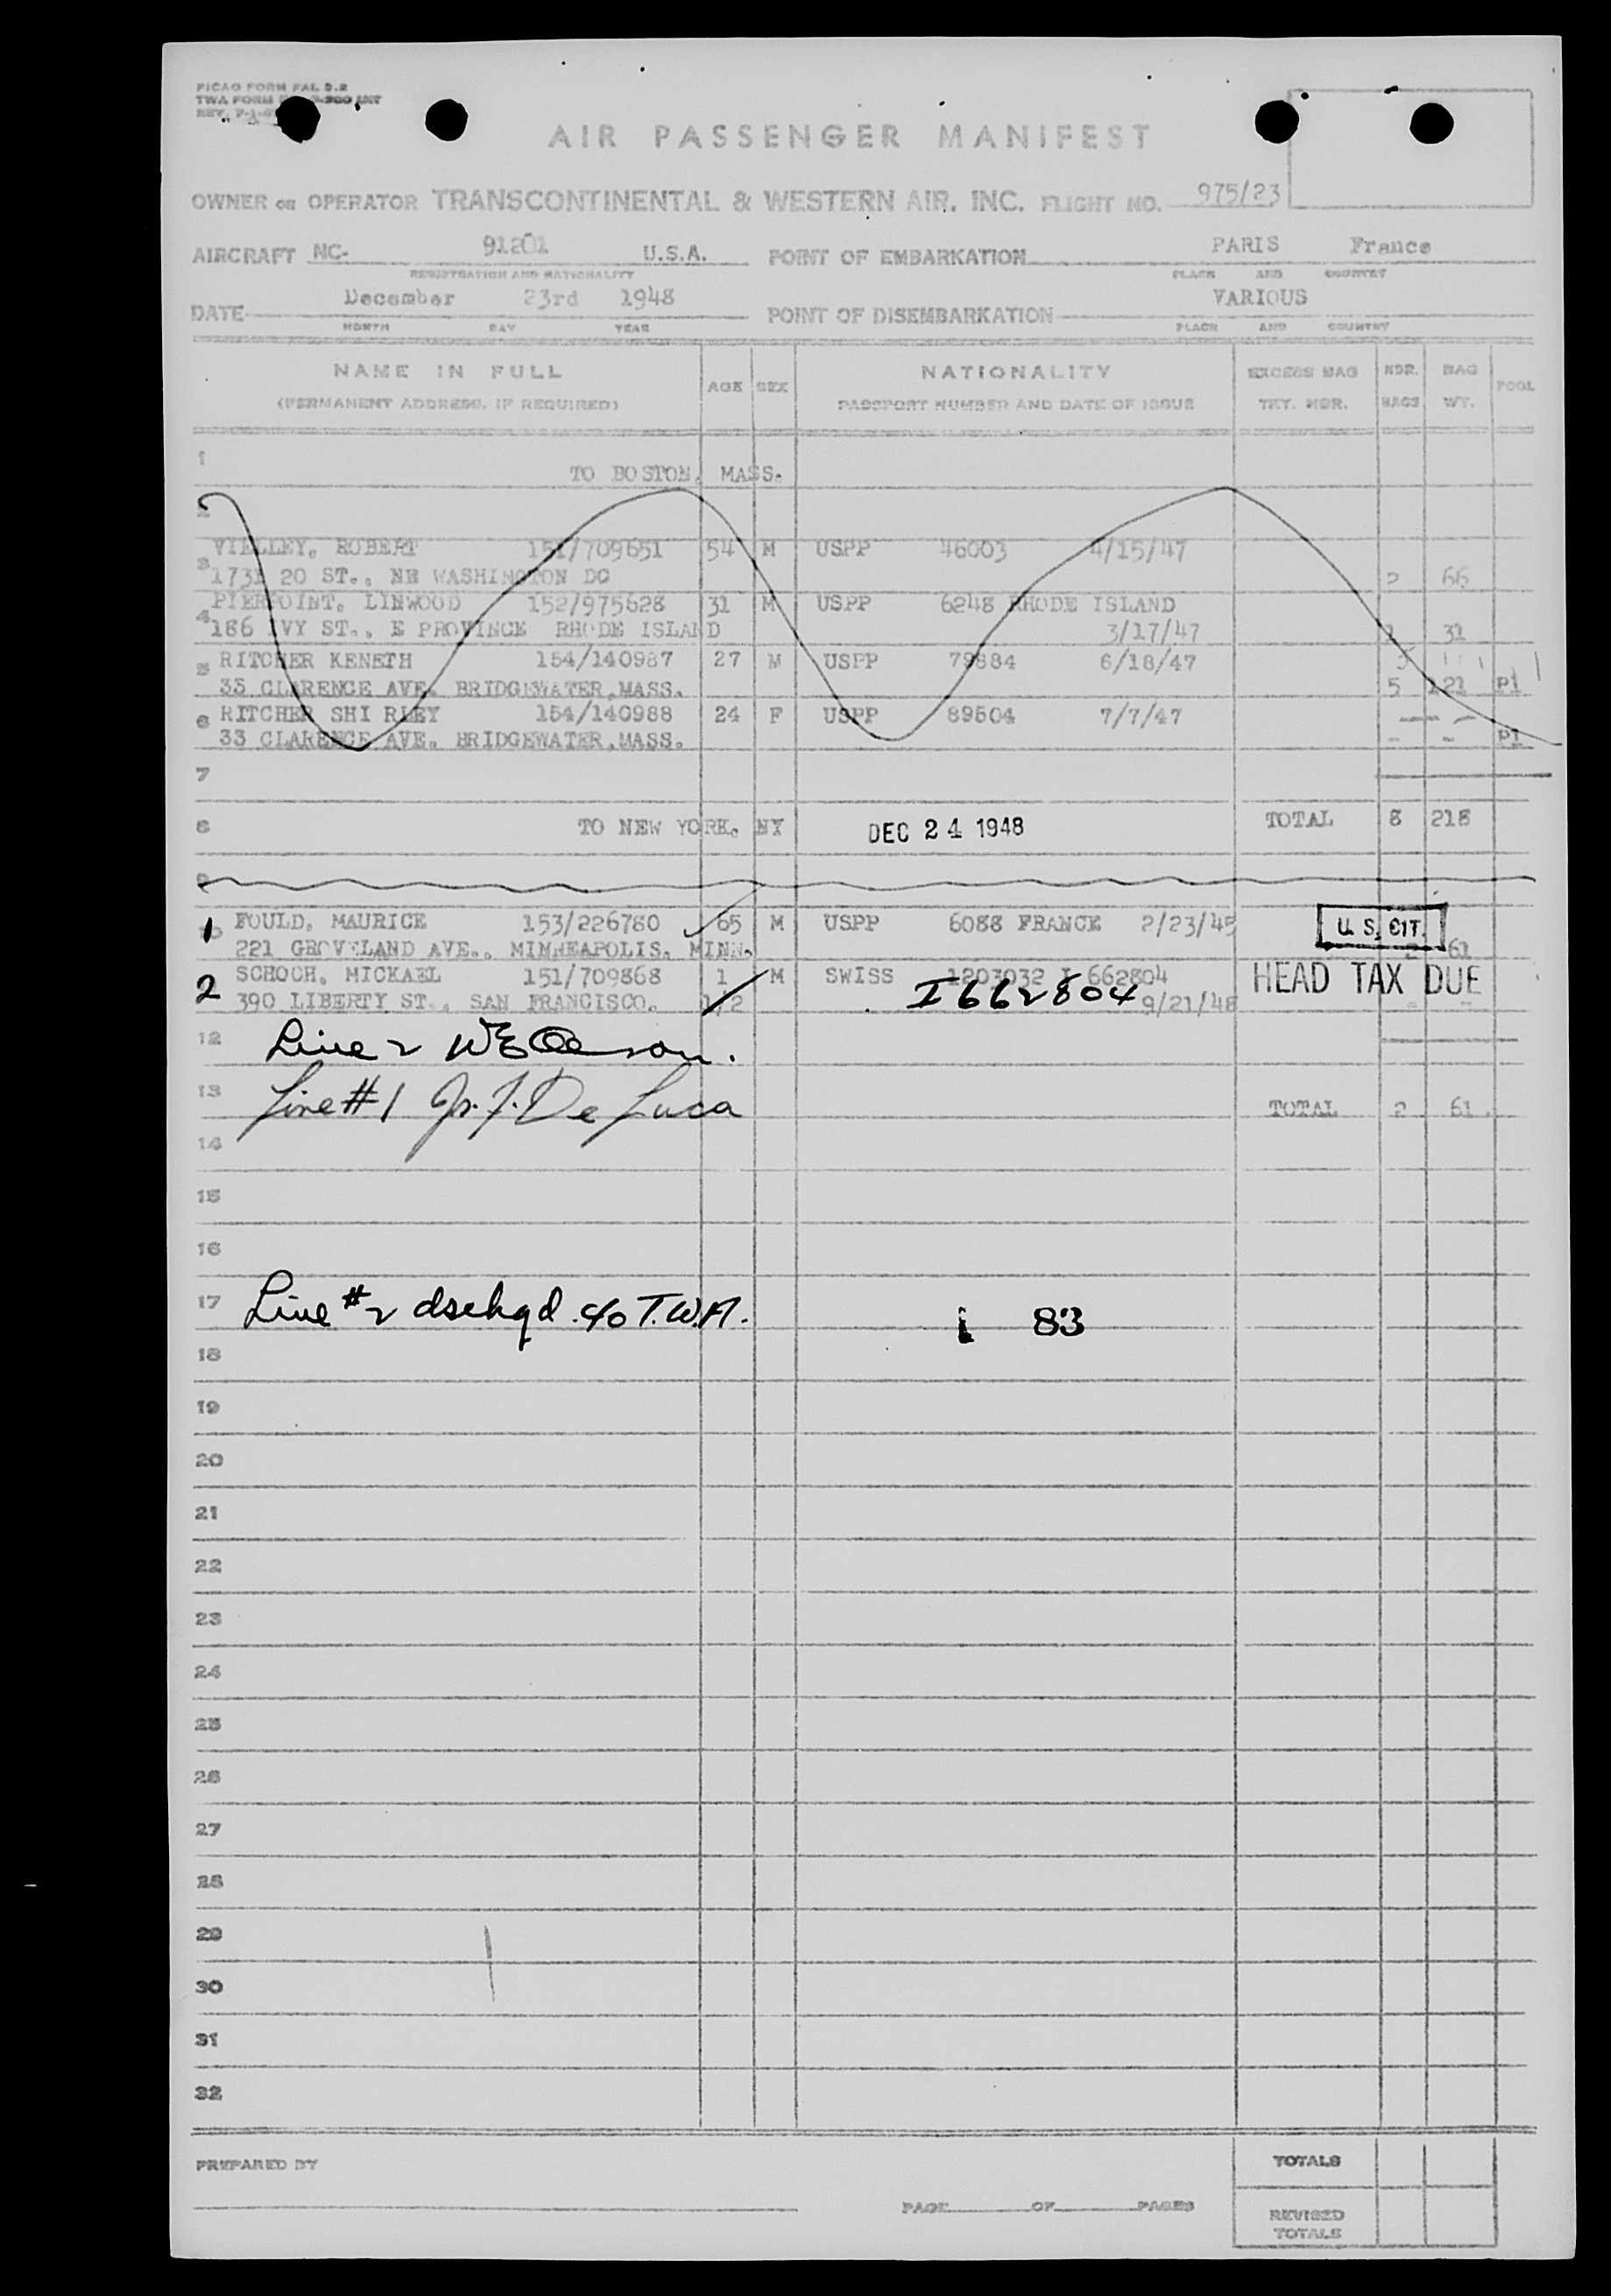 PICAO FORM FAL 2.2
TWA FORM
REV. 7-1-
AIR PASSENGER MANIFEST
OWNER OR OPERATOR TRANSCONTINENTAL & WESTERN AIR, INC. FLIGHT NO. 975/23
AIRCRAFT NC- 91201 U.S.A. POINT OF EMBARKATION PARIS France
REGISTRATION AND NATIONALITY PLACE AND COUNTRY
DATE December 23rd 1948 POINT OF DISEMBARKATION VARIOUS
MONTH DAY YEAR PLACE AND COUNTRY
NAME IN FULL AGE SEX NATIONALITY EXCESS BAG NBR. BAG POOL
(PERMANENT ADDRESS, IF REQUIRED) PASSPORT NUMBER AND DATE OF ISSUE TKT. NBR. BAGS WT.
1 TO BOSTON, MASS.
2
VIELLEY, ROBERT 151/709651 54 M USPP 46003 4/15/47
3 1731 20 ST., NE WASHINGTON DC 2 66
PIERPOINT, LINWOOD 152/975628 31 M USPP 6248 RHODE ISLAND
4 186 IVY ST., E PROVINCE RHODE ISLAND 3/17/47 1 31
5 RITCHER KENETH 154/140987 27 M USPP 79884 6/18/47
33 CLARENCE AVE. BRIDGEWATER,MASS. 5 121 P1
6 RITCHER SHI RLEY 154/140988 24 F USPP 89504 7/7/47
33 CLARENCE AVE. BRIDGEWATER,MASS. - - P1
7
8 TO NEW YORK, NY DEC 24 1948 TOTAL 8 218
9
1 10 FOULD, MAURICE 153/226780 65 M USPP 6088 FRANCE 2/23/45 U. S. CIT.
221 GROVELAND AVE., MINNEAPOLIS, MINN. 2 61
2 SCHOCH, MICKAEL 151/709868 1 M SWISS 1203032 I 662804 HEAD TAX DUE
390 LIBERTY ST., SAN FRANCISCO. 1/2 I662804 9/21/48 - -
12 Line 2
13 Line #1 Jr. F. De Luca TOTAL 2 61
14
15
16
17 Line #2 dschgd. c/o T.W.A. 83
18
19
20
21
22
23
24
25
26
27
28
29
30
31
32
PREPARED BY TOTALS
PAGE OF PAGES REVISED
TOTALS